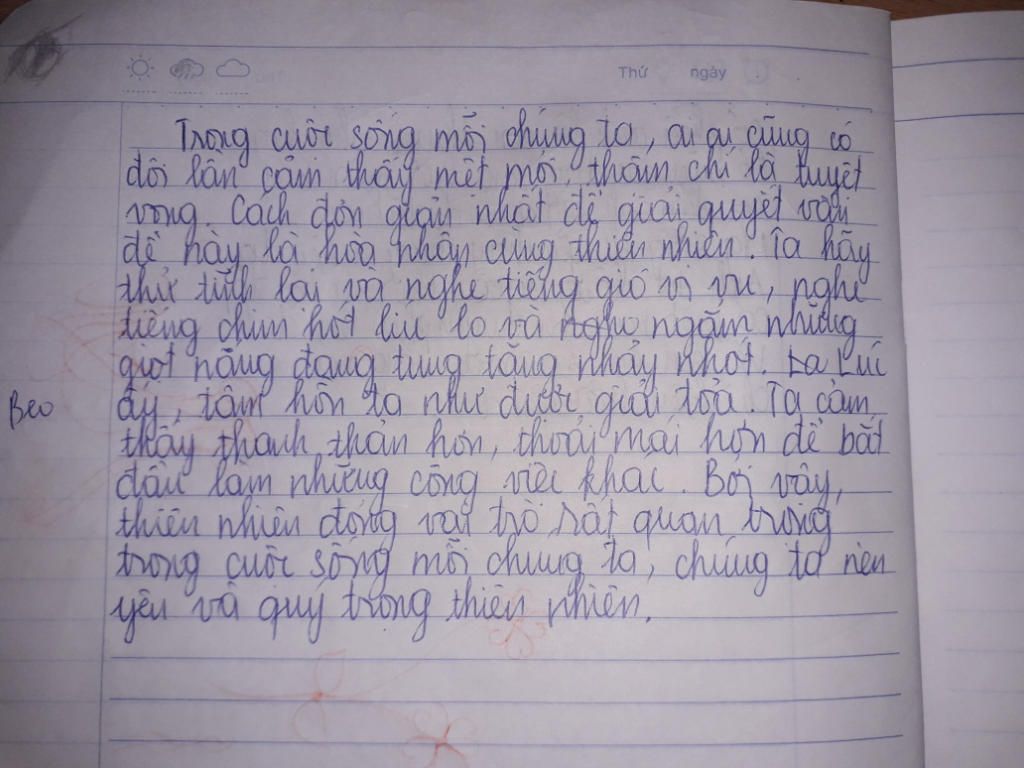 Thứ ngày
Trong cuộc sống mỗi chúng ta, ai ai cũng có
đôi lần cảm thấy mệt mỏi, thậm chí là tuyệt
vọng. Cách đơn giản nhất để giải quyết vấn
đề này là hòa nhận cùng thiên nhiên. Ta hãy
thử tĩnh lại và nghe tiếng gió vi vu, nghe
tiếng chim hót líu lo và ngắm những
giọt nắng đang tung tăng nhảy nhót. Lúc
Beo ấy, tâm hồn ta như được giải tỏa. Ta cảm
thấy thanh thản hơn, thoải mái hơn để bắt
đầu làm những công việc khác. Bởi vậy,
thiên nhiên đóng vai trò rất quan trọng
trong cuộc sống mỗi chúng ta, chúng ta nên
yêu và quý trọng thiên nhiên.